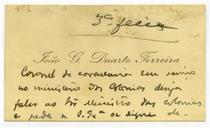 João G. Duarte Ferreira
Coronel de cavalaria em serviço
no ministerio das Colonias deseja
falar ao Sr Ministro das Colonias
e pede a S. Exª se digne de